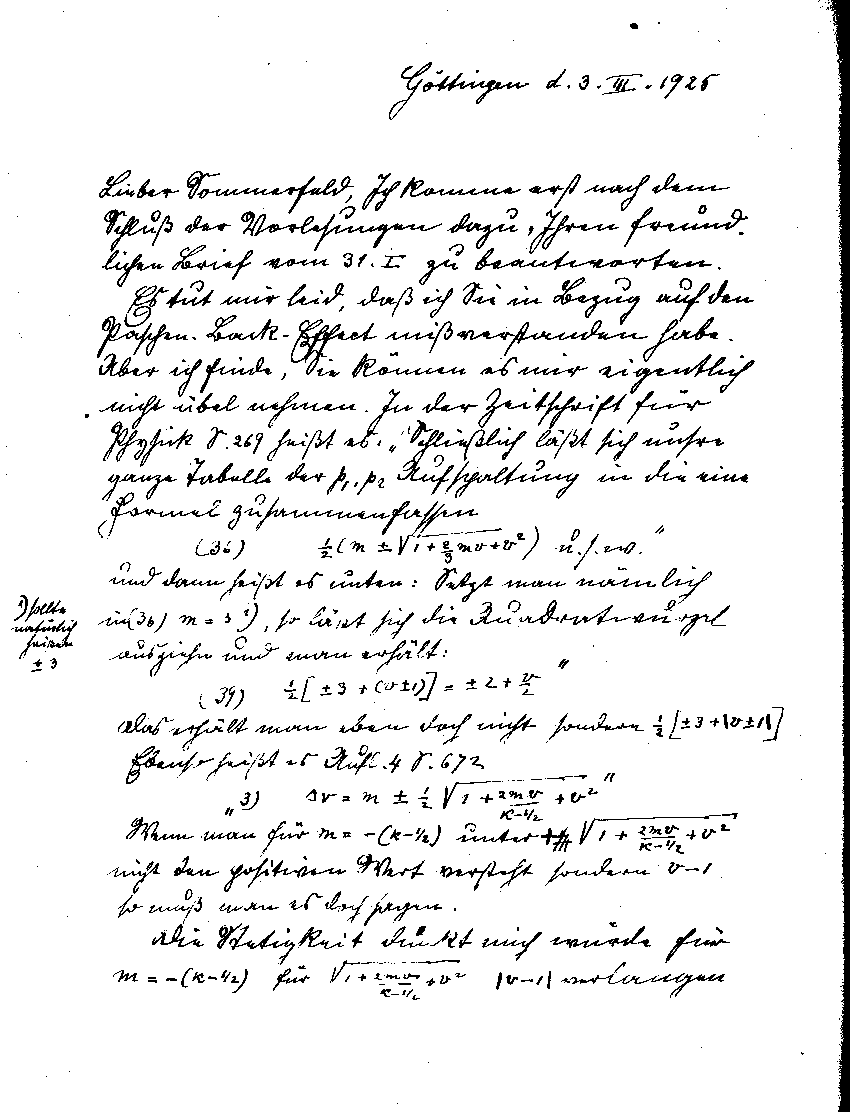 Göttingen d. 3. III. 1925
Lieber Sommerfeld, Ich komme erst nach dem
Schluß der Vorlesungen dazu, Ihren freund-
lichen Brief vom 31. I zu beantworten.
Es tut mir leid, daß ich Sie in Bezug auf den
Paschen-Back-Effect mißverstanden habe.
Aber ich finde, Sie können es mir eigentlich
nicht übel nehmen. In der Zeitschrift für
Physik S. 269 heißt es: „Schließlich läßt sich unsre
ganze Tabelle der p₁, p₂ Aufspaltung in die eine
Formel zusammenfassen
(36) ½(m ± √(1 + ⅔mv + v²)) u.s.w."
und dann heißt es unten: Setzt man nämlich
in (36) m = 3 ¹), so läßt sich die Quadratwurzel
¹) sollte
natürlich
heißen
± 3
ausziehn und man erhält:
(39) ½[±3 + (v±1)] = ±2 + v/2 "
Das erhält man eben doch nicht sondern ½[±3 + |v±1|]
Ebenso heißt es Aufl. 4 S. 672
„3) Δν = m ± ½ √(1 + 2mv/(k-½) + v²) "
Wenn man für m = -(k-½) unter √(1 + 2mv/(k-½) + v²)
nicht den positiven Wert versteht sondern v-1
so muß man es doch sagen.
Die Stetigkeit dünkt mich würde für
m = -(k-½) für √(1 + 2mv/(k-½) + v²) |v-1| verlangen